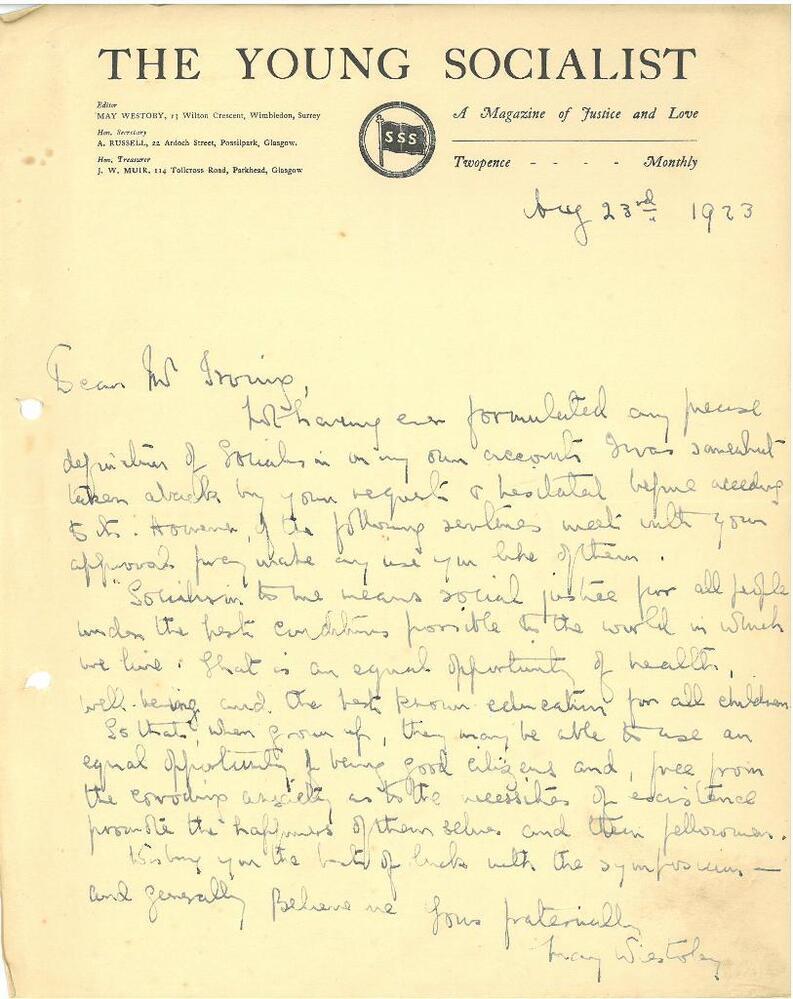 THE YOUNG SOCIALIST
Editor
MAY WESTOBY, 13 Wilton Crescent, Wimbledon, Surrey
Hon. Secretary
A. RUSSELL, 22 Ardoch Street, Possilpark, Glasgow.
Hon. Treasurer
J. W. MUIR, 114 Tollcross Road, Parkhead, Glasgow
SSS
A Magazine of Justice and Love
Twopence - - - - Monthly
Aug 23rd 1923
Dear Mr Irving,
Not having ever formulated any precise
definition of Socialism on my own account I was somewhat
taken aback by your request & hesitated before acceding
to it. However, if the following sentences meet with your
approval pray make any use you like of them.
"Socialism to me means social justice for all people
under the best conditions possible to the world in which
we live. That is an equal opportunity of health,
well-being and the best known education for all children
So that, when grown up, they may be able to use an
equal opportunity of being good citizens and, free from
the corroding anxiety as to the necessities of existence
promote the happiness of themselves and their fellowmen.
Wishing you the best of luck with the symposium —
and generally Believe me Yours fraternally
May Westoby